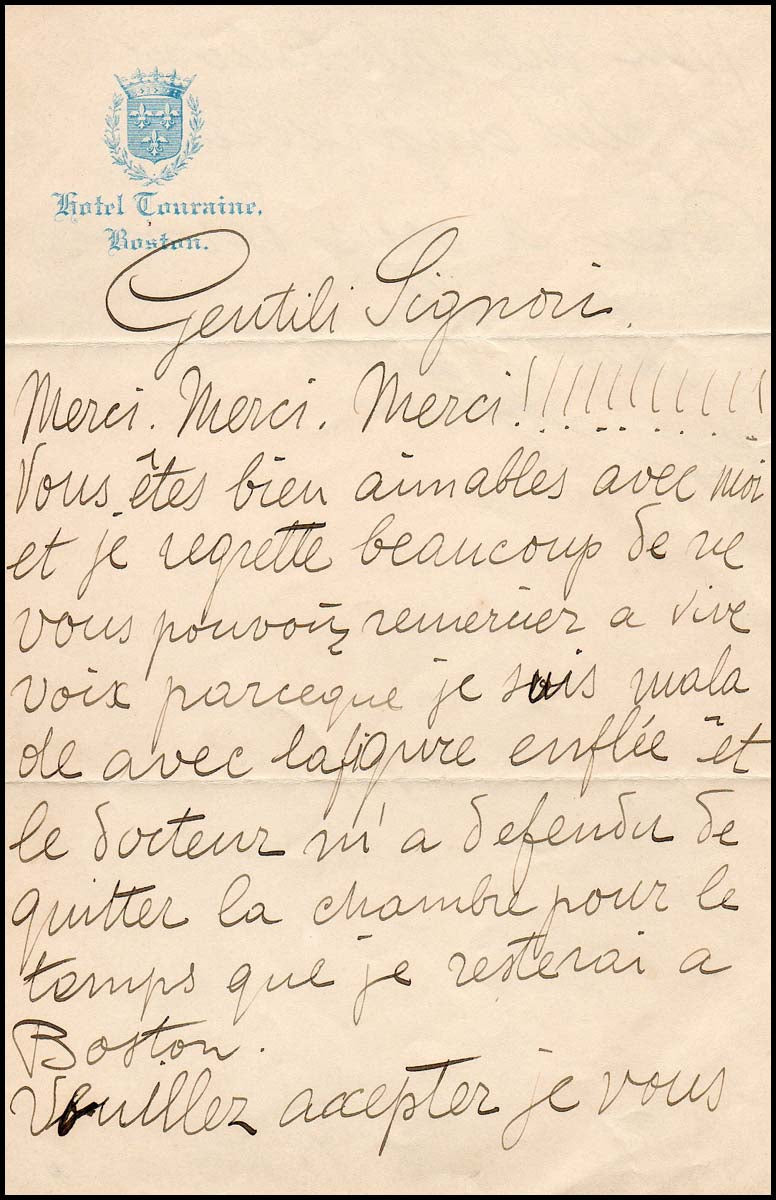 Hotel Touraine.
Boston.
Gentili Signori.
Merci. Merci. Merci!!!!!!!!!!!
Vous êtes bien aimables avec moi
et je regrette beaucoup de ne
vous pouvoir remercier a vive
voix parceque je suis mala
de avec la figure enflée et
le docteur m'a defendu de
quitter la chambre pour le
temps que je resterai a
Boston.
Veuillez accepter je vous